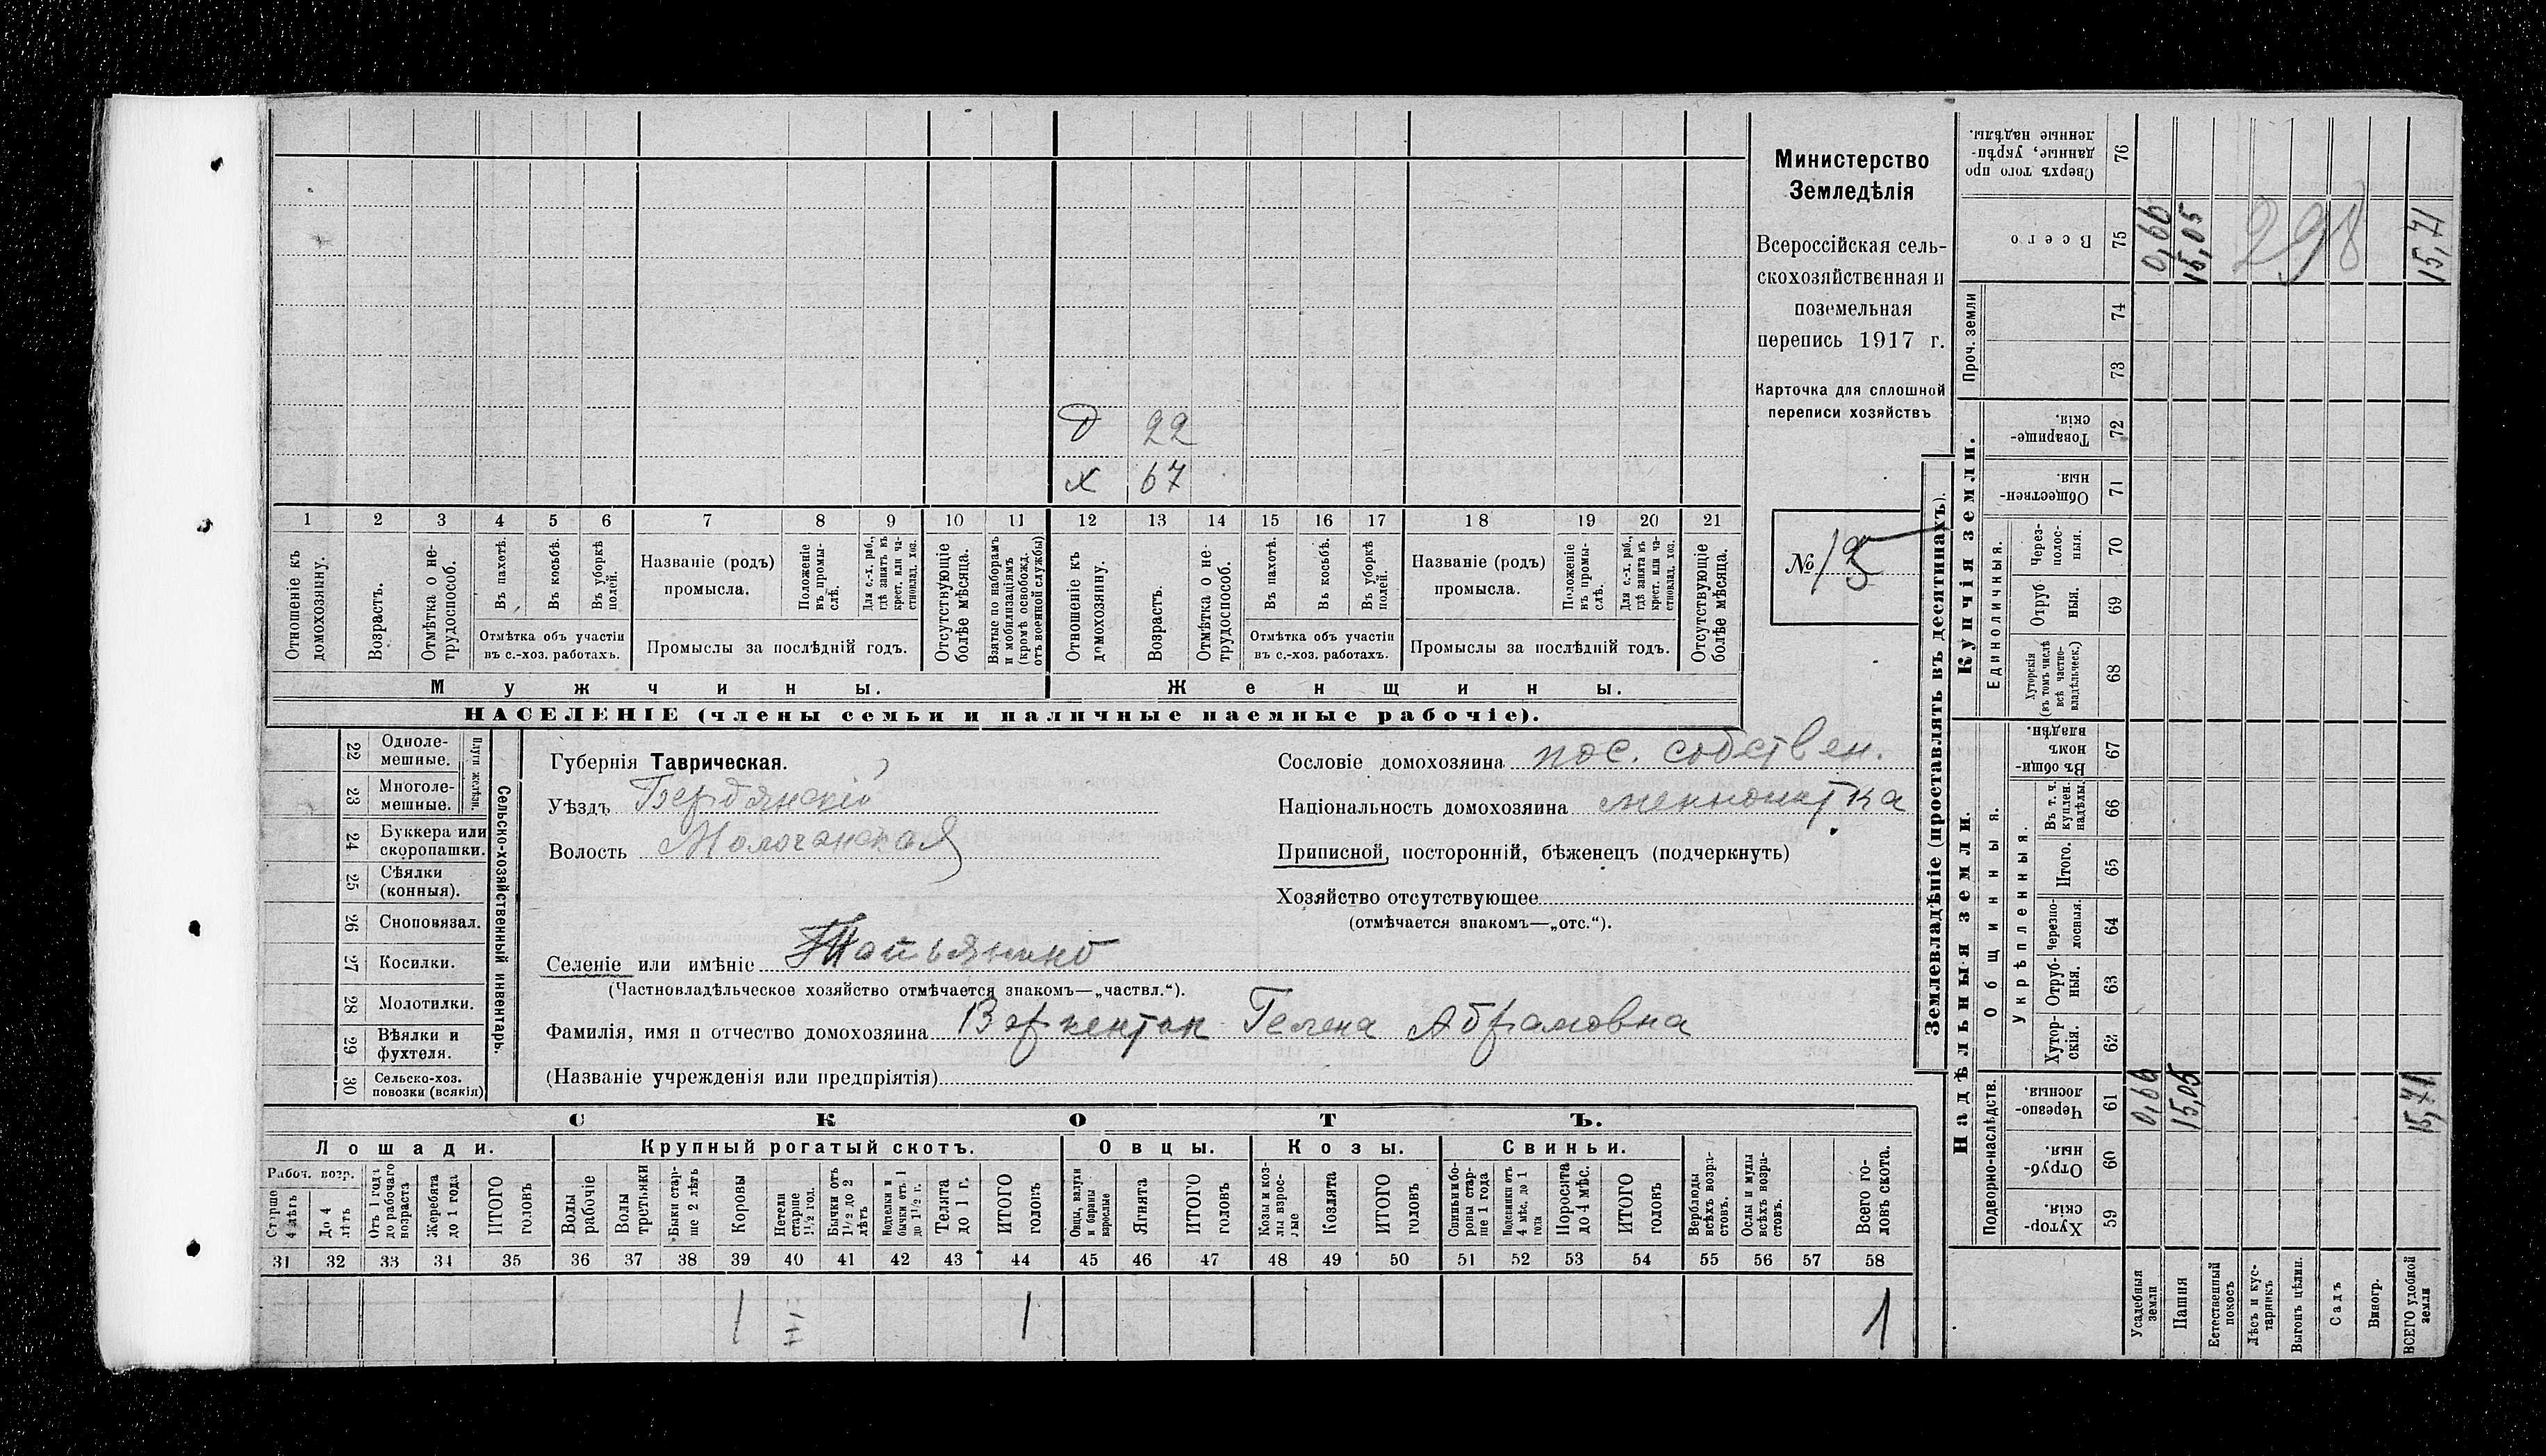 Министерство
Земледѣлія
Всероссійская сель-
скохозяйственная и
поземельная
перепись 1917 г.
Карточка для сплошной
переписи хозяйствъ
№ 15
Д 22
х 67
1 2 3 4 5 6 7 8 9 10 11 12 13 14 15 16 17 18 19 20 21
Отношеніе къ домохозяину.
Возрастъ.
Отмѣтка о не-трудоспособ.
Въ пахотѣ.
Въ косьбѣ.
Въ уборкѣ полей.
Отмѣтка объ участіи
въ с.-хоз. работахъ.
Названіе (родъ)
промысла.
Положеніе въ промы-слѣ.
Для с.-х. раб., гдѣ занятъ въ крест. или ча-стновлад. хоз.
Промыслы за послѣдній годъ.
Отсутствующіе болѣе мѣсяца.
Взятые по наборамъ и мобилизаціямъ (кромѣ освобожд. отъ военной службы)
Отношеніе къ домохозяину.
Возрастъ.
Отмѣтка о не-трудоспособ.
Въ пахотѣ.
Въ косьбѣ.
Въ уборкѣ полей.
Отмѣтка объ участіи
въ с.-хоз. работахъ.
Названіе (родъ)
промысла.
Положеніе въ промы-слѣ.
Для с.-х. раб., гдѣ занята въ крест. или ча-стновлад. хоз.
Промыслы за послѣдній годъ.
Отсутствующіе болѣе мѣсяца.
Мужчины.
Женщины.
НАСЕЛЕНІЕ (члены семьи и наличные наемные рабочіе).
Сельско-хозяйственный инвентарь.
Плуги желѣзн.
22 Одноле-мешные.
23 Многоле-мешные.
24 Буккера или скоропашки.
25 Сѣялки (конныя).
26 Сноповязал.
27 Косилки.
28 Молотилки.
29 Вѣялки и фухтеля.
30 Сельско-хоз. повозки (всякія)
Губернія Таврическая.
Уѣздъ Бердянскій
Волость Молочанская
Селеніе или имѣніе
(Частновладѣльческое хозяйство отмѣчается знакомъ—„частвл.“).
Фамилія, имя и отчество домохозяина Варкентин Гелена Абрамовна
(Названіе учрежденія или предпріятія)
Сословіе домохозяина пос. собствен.
Національность домохозяина меннонитка
Приписной, посторонній, бѣженецъ (подчеркнуть)
Хозяйство отсутствующее
(отмѣчается знакомъ—„отс.“).
СКОТЪ.
Лошади.
Крупный рогатый скотъ.
Овцы.
Козы.
Свиньи.
Рабоч. возр.
Старше 4 лѣтъ
До 4 лѣтъ
Отъ 1 года до рабочаго возраста
Жеребята до 1 года
ИТОГО головъ
Волы рабочіе
Волы третьяки
Быки стар-ше 2 лѣтъ
Коровы
Нетели старше 1½ год.
Бычки отъ 1½ до 2 лѣтъ
Подтелки и бычки отъ 1 до 1½ г.
Телята до 1 г.
ИТОГО головъ
Овцы, валухи и бараны взрослые
Ягнята
ИТОГО головъ
Козы и коз-лы взрос-лые
Козлята
ИТОГО головъ
Свиньи и бо-роны стар-ше 1 года
Подсвинки отъ 4 мѣс. до 1 года
Поросята до 4 мѣс.
ИТОГО головъ
Верблюды всѣхъ возра-стовъ.
Ослы и мулы всѣхъ возра-стовъ.
Всего го-ловъ скота.
31 32 33 34 35 36 37 38 39 40 41 42 43 44 45 46 47 48 49 50 51 52 53 54 55 56 57 58
1 1 1
Землевладѣніе (проставлять въ десятинахъ).
Надѣльныя земли.
Купчія земли.
Проч. земли
Подворно-наслѣдств.
Общинныя.
Укрѣпленныя.
Единоличныя.
Сверхъ того про данные, укрѣп-ленные надѣлы. 76
Всего 75
74
73
Товарище-скія. 72
Обществен-ныя. 71
Через-полос-ныя. 70
Отруб ныя. 69
Хуторскія (въ томъ числѣ всѣ частно-владѣльческ.) 68
Въ общин-номъ владѣн. 67
Въ т. ч. куплен. надѣлы. 66
Итого. 65
Черезпо-лосныя. 64
Отруб-ныя. 63
Хутор-скія. 62
Черезпо-лосныя. 61
Отруб-ныя. 60
Хутор-скія. 59
Усадебныя земли
Пашня
Естественный покосъ
Лѣсъ и кус-тарникъ
Выгонъ цѣлин.
Садъ
Виногр.
ВСЕГО удобной земли
0,66
15,05
298
15,71
0,66
15,05
15,71